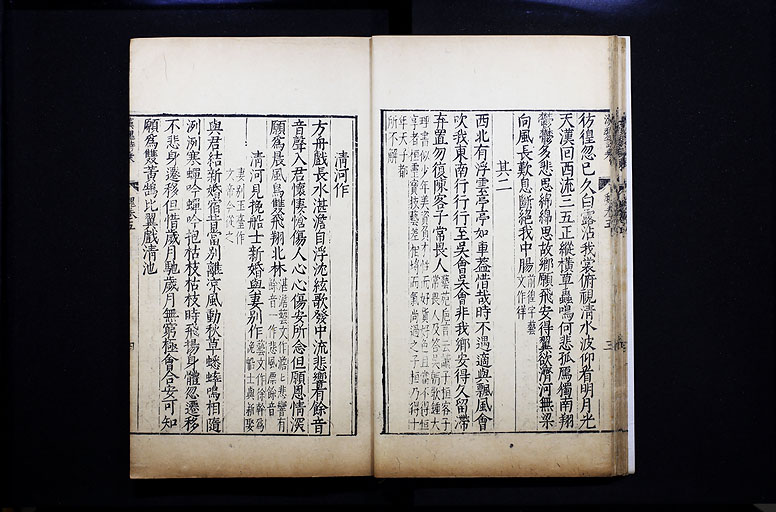 彷徨忽已久白露沾我裳俯視淸水波仰看明月光
天漢囘西流三五正縱橫草蟲鳴何悲孤鴈獨南翔
鬱鬱多悲思綿綿思故鄉願飛安得翼欲濟河無梁
向風長歎息斷絕我中腸
其二
西北有浮雲亭亭如車蓋惜哉時不遇適與飄風會
吹我東南行行行至吳會吳會非我鄉安得久留滯
弃置勿復陳客子常畏人
所不解
淸河作
方舟戲長水湛澹自浮沈絃歌發中流悲響有餘音
音聲入君懷悽愴傷人心心傷安所念但願恩情深
願爲晨風鳥雙飛翔北林
淸河見挽船士新婚與妻別作
妻別玉臺作
文帝今從之
與君結新婚宿昔當別離涼風動秋草蟋蟀鳴相隨
洌洌寒蟬吟蟬吟抱枯枝枯枝時飛揚身體忽遷移
不悲身遷移但惜歲月馳歲月無窮極會合安可知
願爲雙黃鵠比翼戲淸池